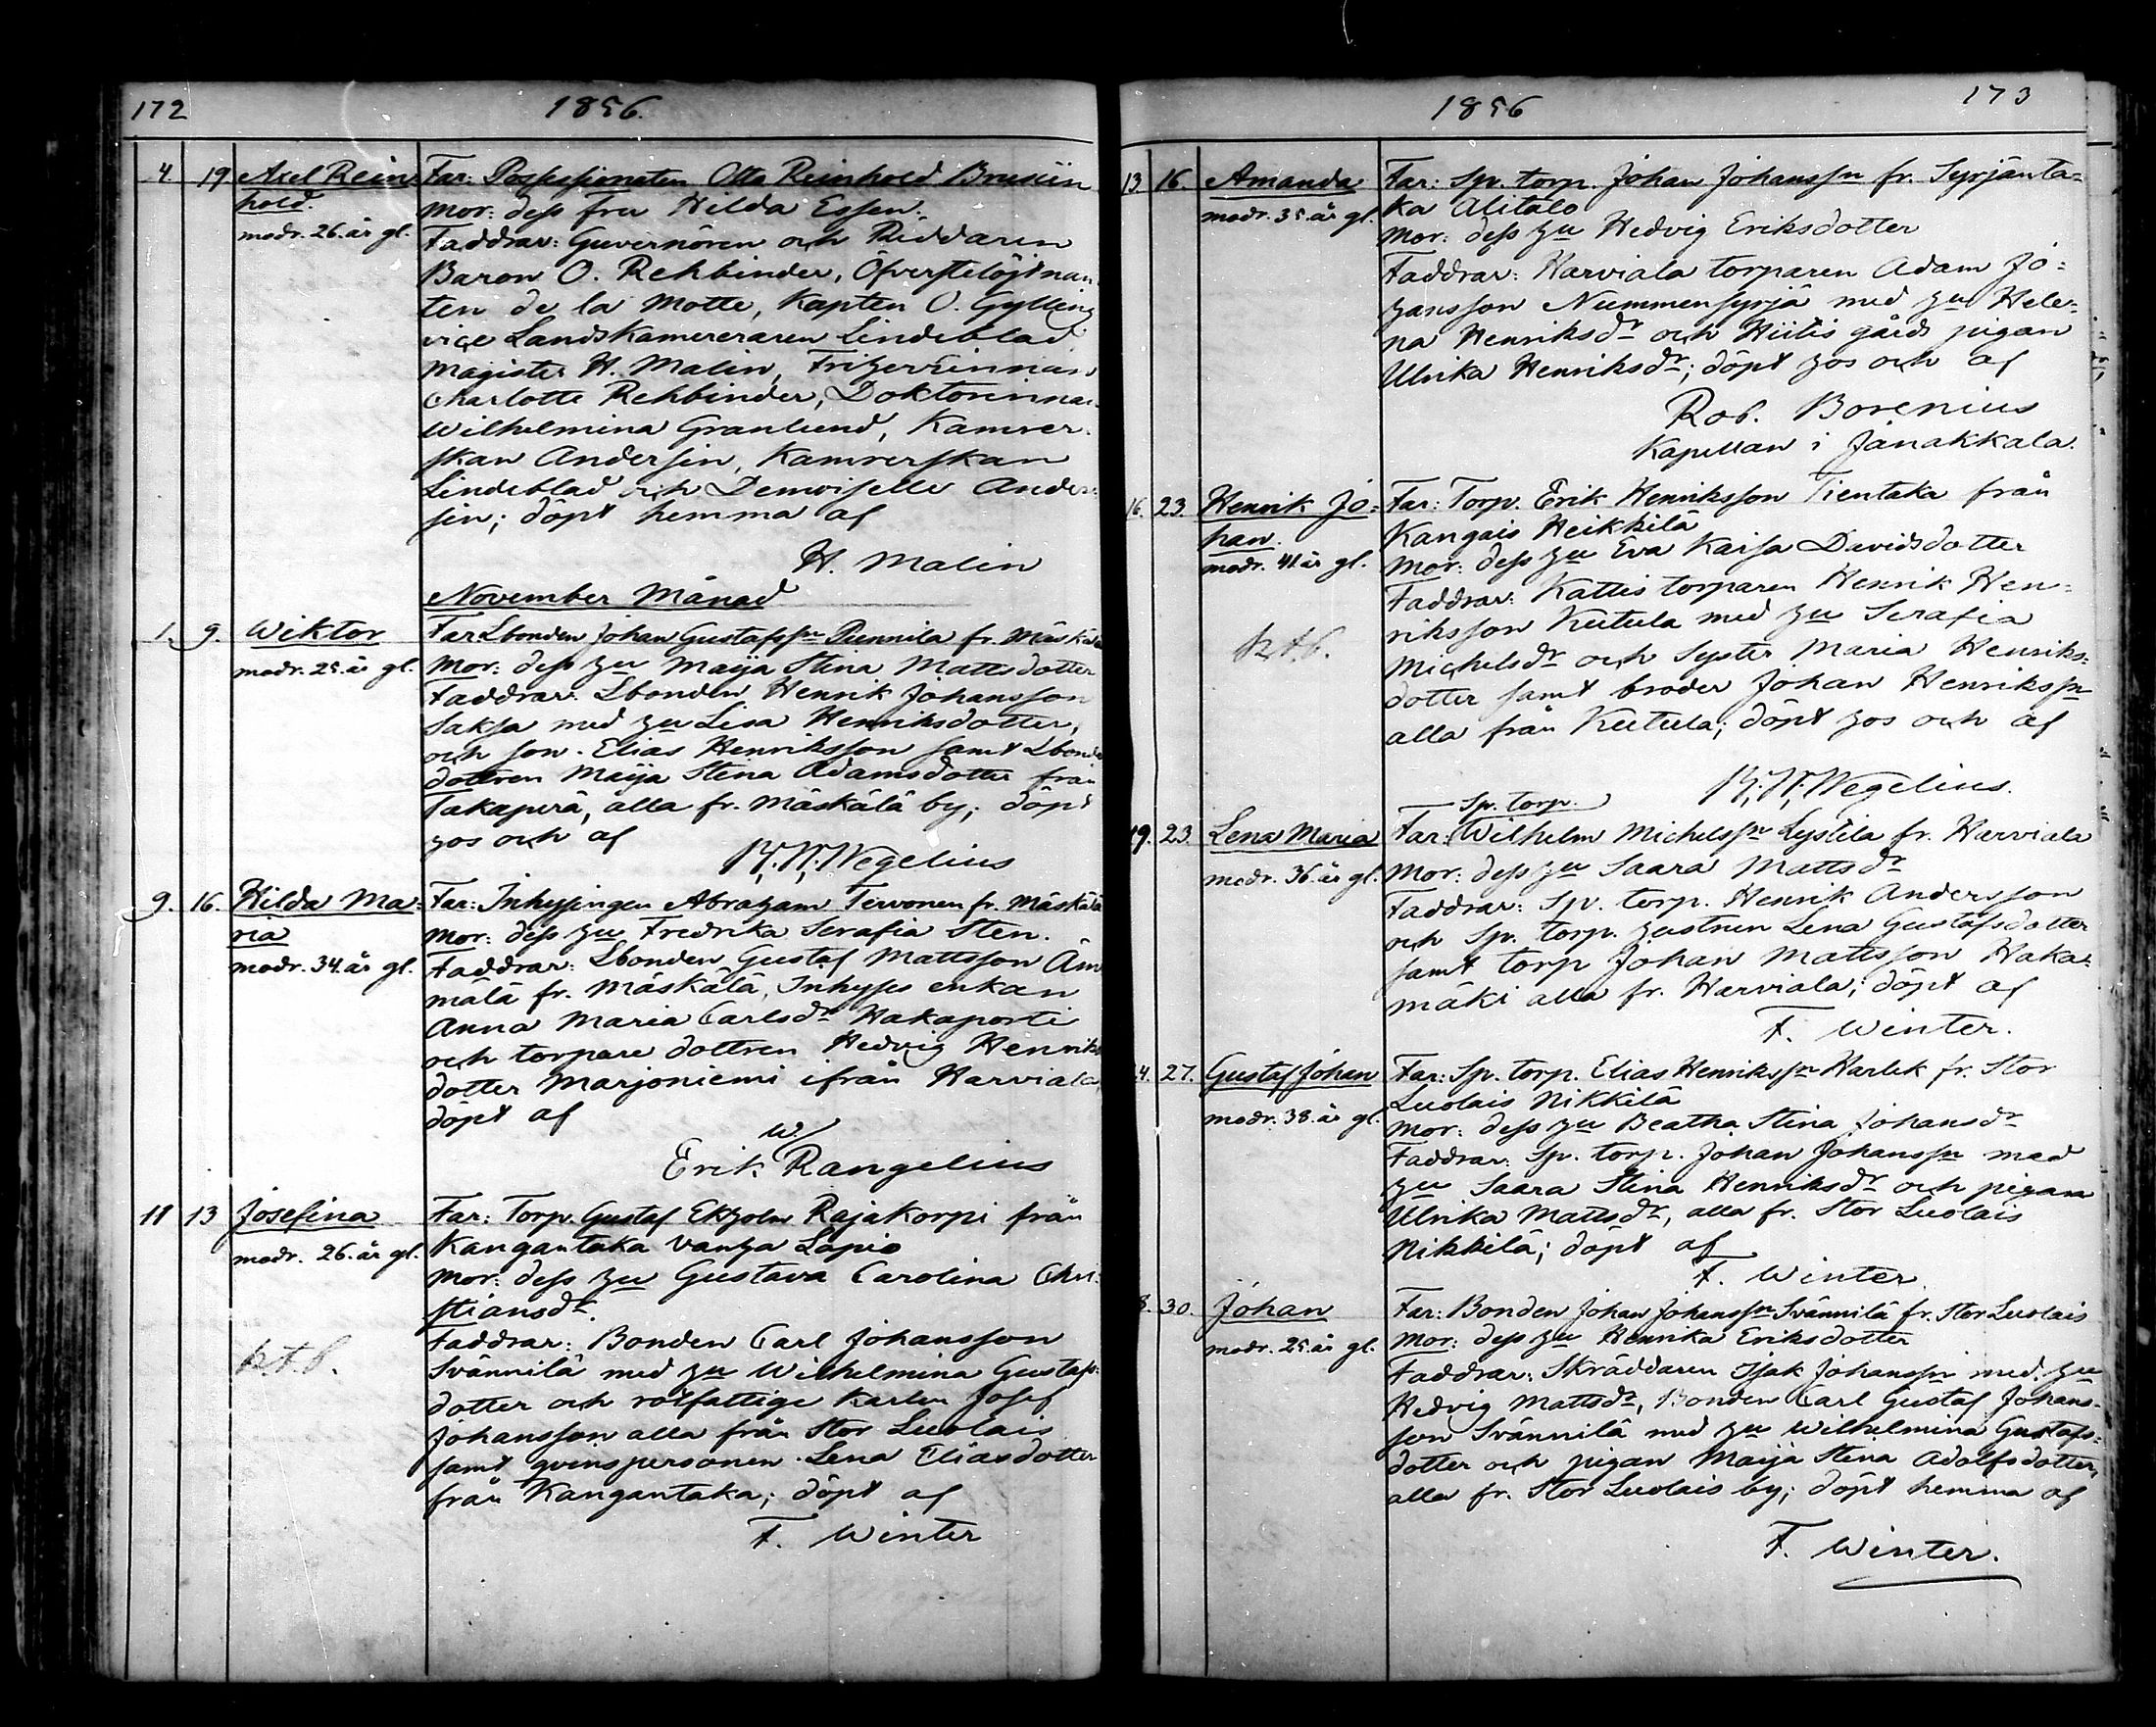 172
1856.
4. 19 Axel Rein
hold.
modr. 26. år gl.
Far: Possessionaten Otto Reinhold Brusiin
Mor: dess fru Hilda Essen.
Faddrar: Guvernören och Riddaren
Baron O. Rehbinder, Öfverstelöjtnan
ten de la Motte, Kapten O. Gylling
vice Landskamereraren Lindeblad
Magister H. Malin, Friherrinnan
Charlotte Rehbinder, Doktorinnan
Wilhelmina Granlund, Kamrer-
skan Andersin, Kamrerskan
Lindeblad och Demoiselle Ander-
sin; döpt hemma af
H. Malin
November Månad
1. 9. Wiktor
modr. 25. år gl.
Far: Lbonden Johan Gustafssn Punnila fr. Mäskälä
Mor: dess hu Maija Stina Mattsdotter
Faddrar: Lbonden Henrik Johansson
Saksa med hu Lisa Henriksdotter,
och son Elias Henriksson samt Lbonde
dottren Maija Stina Adamsdotter från
Takaperä, alla fr. Mäskälä by; döpt
hos och af
K. H. Wegelius
9. 16. Hilda Ma-
ria
modr. 34. år gl.
Far: Inhysingen Abraham Tervonen fr. Mäskälä
Mor: dess hu Fredrika Serafia Sten.
Faddrar: Lbonden Gustaf Mattsson Äm
mälä fr. Mäskälä, Inhyses enkan
Anna Maria Carlsdr Hakaporti
och torpare dottren Hedvig Henriks
dotter Marjoniemi ifrån Harviala,
döpt af
W.
Erik Rangelius
11 13 Josefina
modr. 26. år gl.
Far: Torp. Gustaf Ekholm Rajakorpi från
Kangantaka Vanha Lapio
Mor: dess hu Gustava Carolina Chri-
stiansdr.
k.t.b.
Faddrar: Bonden Carl Johansson
Svännilä med hu Wilhelmina Gustafs-
dotter och rotfattige Karlen Josef
Johansson alla från Stor Luolais
samt qvinspersonen Lena Eliasdotter
från Kangantaka; döpt af
F. Winter
1856
173
13 16. Amanda
modr. 35. år gl.
Far: Sp. torp. Johan Johanssn fr. Syrjänta-
ka Alitalo
Mor: dess hu Hedvig Eriksdotter
Faddrar: Harviala torparen Adam Jo-
hansson Nummensyrjä med hu Hele-
na Henriksdr och Hiitis gårds pigan
Ulrika Henriksdr; döpt hos och af
Rob. Borenius
Kapellan i Janakkala.
16. 23. Henrik Jo-
han.
modr. 41. år gl.
Far: Torp. Erik Henriksson Tientaka från
Kangais Heikkilä
Mor: dess hu Eva Kaisa Davidsdotter
Faddrar: Kattis torparen Henrik Hen-
riksson Kutula med hu Serafia
k.t.b.
Michelsdr och Syster Maria Henriks-
dotter samt broder Johan Henrikssn
alla från Kutula; döpt hos och af
K. H. Wegelius.
Sp. torp.
19. 23. Lena Maria
modr. 36. år gl.
Far: Wilhelm Michelssn Lystilä fr. Harviala
Mor: dess hu Saara Mattsdr
Faddrar: Sp. torp. Henrik Andersson
och Sp. torp. hustrun Lena Gustafsdotter
samt torp Johan Mattsson Haka-
mäki alla fr. Harviala; döpt af
F. Winter.
4. 27. Gustaf Johan
modr. 38. år gl.
Far: Sp. torp. Elias Henrikssn Harlek fr. Stor
Luolais Nikkilä
Mor: dess hu Beatha Stina Johansdr
Faddrar: Sp. torp. Johan Johanssn med
hu Saara Stina Henriksdr och pigan
Ulrika Mattsdr, alla fr. Stor Luolais
Nikkilä; döpt af
F. Winter.
8. 30. Johan
modr. 25. år gl.
Far: Bonden Johan Johanssn Svännilä fr. Stor Luolais
Mor: dess hu Henrika Eriksdotter
Faddrar: Skräddaren Isak Johanssn med hu
Hedvig Mattsdr, Bonden Carl Gustaf Johans-
son Svännilä med hu Wilhelmina Gustafs-
dotter och pigan Maija Stina Adolfsdotter,
alla fr. Stor Luolais by; döpt hemma af
F. Winter.